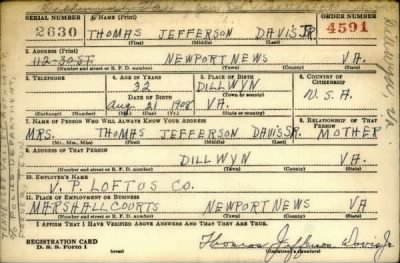 SERIAL NUMBER 1. NAME (Print) ORDER NUMBER
2630 THOMAS JEFFERSON DAVIS JR. 4591
(First) (Middle) (Last)
2. ADDRESS (Print)
112-30 ST. NEWPORT NEWS VA.
(Number and street or R. F. D. number) (Town) (County) (State)
3. TELEPHONE 4. AGE IN YEARS 5. PLACE OF BIRTH 6. COUNTRY OF CITIZENSHIP
32 DILLWYN
DATE OF BIRTH (Town or county)
Aug 21 1908 VA. U.S.A.
(Exchange) (Number) (Mo.) (Day) (Yr.) (State or country)
7. NAME OF PERSON WHO WILL ALWAYS KNOW YOUR ADDRESS 8. RELATIONSHIP OF THAT PERSON
MRS. THOMAS JEFFERSON DAVIS SR. MOTHER
(Mr., Mrs., Miss) (First) (Middle) (Last)
9. ADDRESS OF THAT PERSON
DILLWYN VA.
(Number and street or R. F. D. number) (Town) (County) (State)
10. EMPLOYER'S NAME
V. P. LOFTUS CO.
11. PLACE OF EMPLOYMENT OR BUSINESS
MARSHALL COURTS NEWPORT NEWS VA
(Number and street or R. F. D. number) (Town) (County) (State)
I AFFIRM THAT I HAVE VERIFIED ABOVE ANSWERS AND THAT THEY ARE TRUE.
REGISTRATION CARD
D. S. S. Form 1 (over) Thomas Jefferson Davis Jr